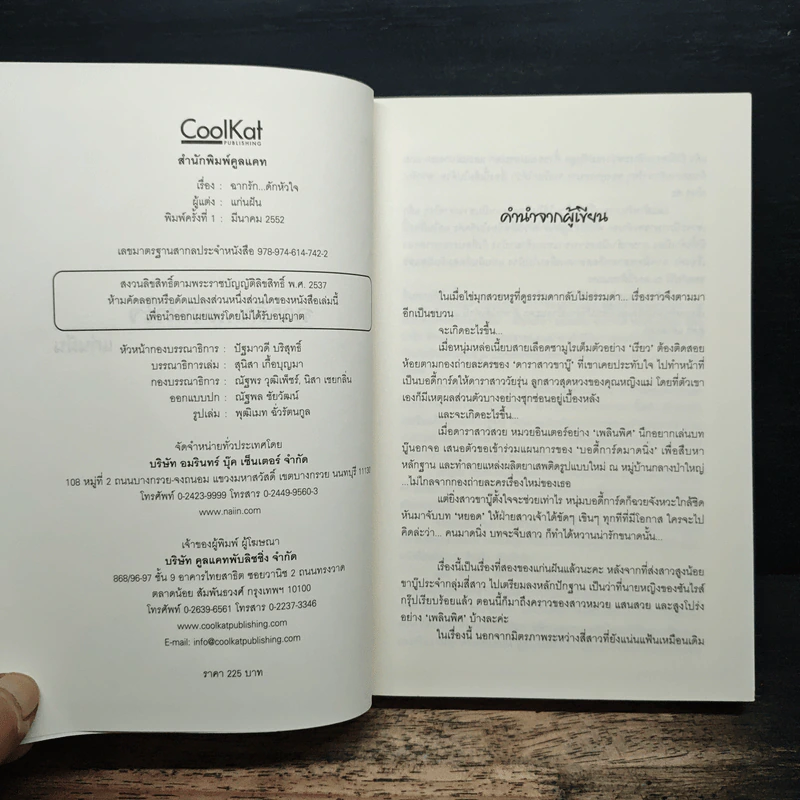 CoolKat
PUBLISHING
สำนักพิมพ์คูลแคท
เรื่อง : ฉากรัก...ดักหัวใจ
ผู้แต่ง : แก่นฝัน
พิมพ์ครั้งที่ 1 : มีนาคม 2552
เลขมาตรฐานสากลประจำหนังสือ 978-974-614-742-2
สงวนลิขสิทธิ์ตามพระราชบัญญัติลิขสิทธิ์ พ.ศ. 2537
ห้ามคัดลอกหรือดัดแปลงส่วนหนึ่งส่วนใดของหนังสือเล่มนี้
เพื่อนำออกเผยแพร่โดยไม่ได้รับอนุญาต
หัวหน้ากองบรรณาธิการ : ปัฐมาวดี บริสุทธิ์
บรรณาธิการเล่ม : สุนิสา เกื้อบุญมา
กองบรรณาธิการ : ณัฐพร วุฒิเพ็ชร์, นิสา เชยกลิ่น
ออกแบบปก : ณัฐพล ชัยวัฒน์
รูปเล่ม : พุฒิเมท อั่วรัตนกูล
จัดจำหน่ายทั่วประเทศโดย
บริษัท อมรินทร์ บุ๊ค เซ็นเตอร์ จำกัด
108 หมู่ที่ 2 ถนนบางกรวย-จงถนอม แขวงมหาสวัสดิ์ เขตบางกรวย นนทบุรี 11130
โทรศัพท์ 0-2423-9999 โทรสาร 0-2449-9560-3
www.naiin.com
เจ้าของผู้พิมพ์ ผู้โฆษณา
บริษัท คูลแคทพับลิชชิ่ง จำกัด
868/96-97 ชั้น 9 อาคารไทยสาธิต ซอยวานิช 2 ถนนทรงวาด
ตลาดน้อย สัมพันธวงศ์ กรุงเทพฯ 10100
โทรศัพท์ 0-2639-6561 โทรสาร 0-2237-3346
www.coolkatpublishing.com
E-mail: info@coolkatpublishing.com
ราคา 225 บาท
คำนำจากผู้เขียน
ในเมื่อไข่มุกสวยหรูที่ดูธรรมดากลับไม่ธรรมดา... เรื่องราวจึงตามมา
อีกเป็นขบวน
จะเกิดอะไรขึ้น...
เมื่อหนุ่มหล่อเนี้ยบสายเลือดซามูไรเต็มตัวอย่าง 'เรียว' ต้องติดสอย
ห้อยตามกองถ่ายละครของ 'ดาราสาวขาบู๊' ที่เขาเคยประทับใจ ไปทำหน้าที่
เป็นบอดี้การ์ดให้ดาราสาววัยรุ่น ลูกสาวสุดหวงของคุณหญิงแม่ โดยที่ตัวเขา
เองก็มีเหตุผลส่วนตัวบางอย่างซุกซ่อนอยู่เบื้องหลัง
และจะเกิดอะไรขึ้น...
เมื่อดาราสาวสวย หมวยอินเตอร์อย่าง 'เพลินพิศ' นึกอยากเล่นบท
บู๊นอกจอ เสนอตัวขอเข้าร่วมแผนการของ 'บอดี้การ์ดมาดนิ่ง' เพื่อสืบหา
หลักฐาน และทำลายแหล่งผลิตยาเสพติดรูปแบบใหม่ ณ หมู่บ้านกลางป่าใหญ่
...ไม่ไกลจากกองถ่ายละครเรื่องใหม่ของเธอ
แต่ยิ่งสาวขาบู๊ตั้งใจจะช่วยเท่าไร หนุ่มบอดี้การ์ดก็ฉวยจังหวะใกล้ชิด
หันมาจับบท 'หยอด' ให้ฝ่ายสาวเจ้าได้ขัดๆ เขินๆ ทุกทีที่มีโอกาส ใครจะไป
คิดล่ะว่า... คนมาดนิ่ง บทจะจีบสาว ก็ทำได้หวานน่ารักขนาดนั้น...
เรื่องนี้เป็นเรื่องที่สองของแก่นฝันแล้วนะคะ หลังจากที่ส่งสาวสูงน้อย
ขาบู๊ประจำกลุ่มสี่สาว ไปเตรียมลงหลักปักฐาน เป็นว่าที่นายหญิงของซันไรส์
กรุ๊ปเรียบร้อยแล้ว ตอนนี้ก็มาถึงคราวของสาวหมวย แสนสวย และสูงโปร่ง
อย่าง 'เพลินพิศ' บ้างละค่ะ
ในเรื่องนี้ นอกจากมิตรภาพระหว่างสี่สาวที่ยังแน่นแฟ้นเหมือนเดิม